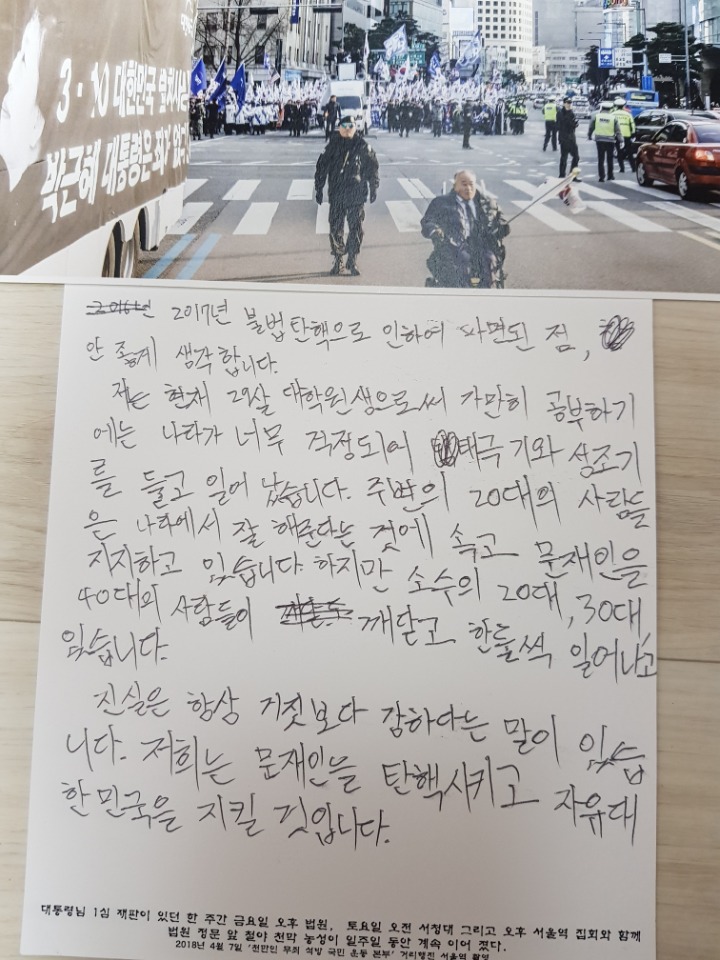 3·10 대한민국
박근혜 대통령은 죄가
2017년 불법탄핵으로 인하여 파면된 점,
안 좋게 생각합니다.
저는 현재 29살 대학원생으로써 가만히 공부하기
에는 나라가 너무 걱정되어 태극기와 성조기
를 들고 일어 났습니다. 주변의 20대의 사람들
은 나라에서 잘 해준다는 것에 속고 문재인을
지지하고 있습니다. 하지만 소수의 20대, 30대,
40대의 사람들이 깨닫고 한둘씩 일어나고
있습니다.
진실은 항상 거짓보다 강하다는 말이 있습
니다. 저희는 문재인을 탄핵시키고 자유대
한민국을 지킬 것입니다.
대통령님 1심 재판이 있던 한 주간 금요일 오후 법원, 토요일 오전 서청대 그리고 오후 서울역 집회와 함께
법원 정문 앞 철야 천막 농성이 일주일 동안 계속 이어 졌다.
2018년 4월 7일 '천만인 무죄 석방 국민 운동 본부' 거리행진 서울역 촬영